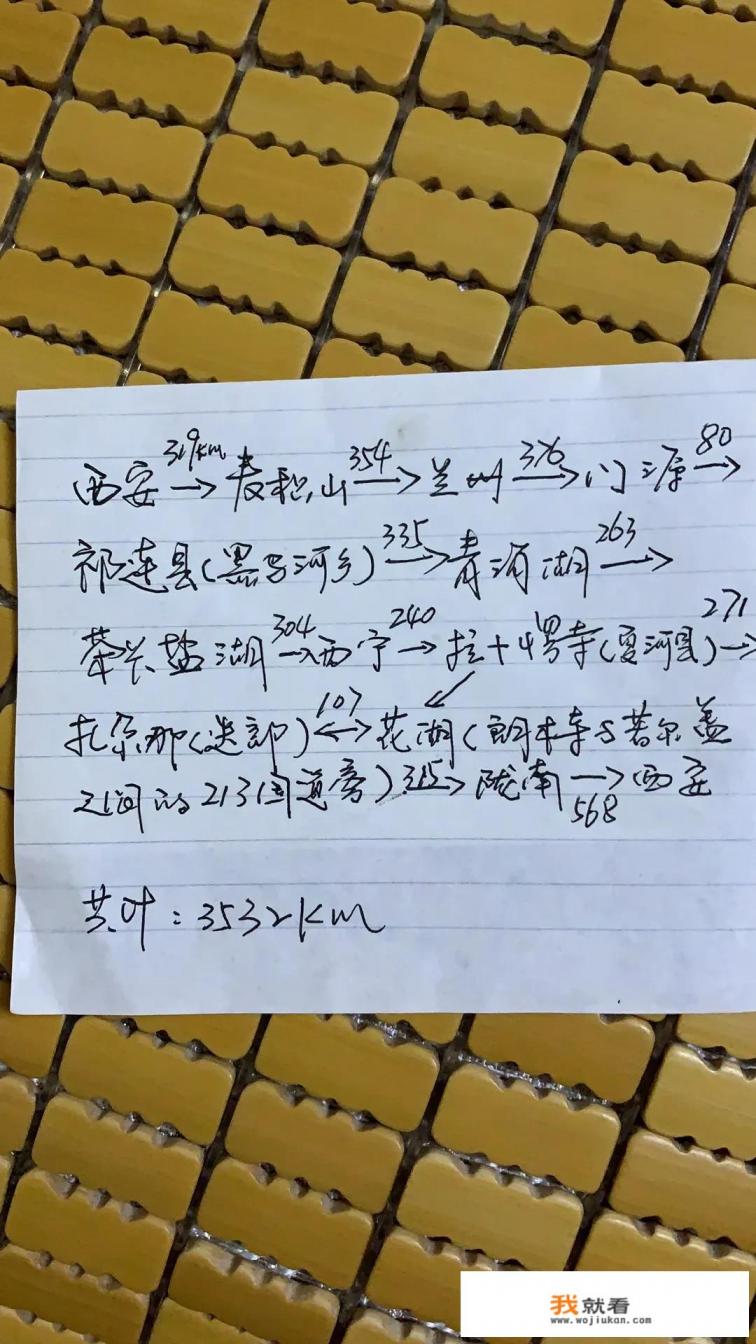 西安 319km → 麦积山 354 → 兰州 376 → 门源 80 →
祁连县(黑马河乡) 335 → 青海湖 263 →
茶卡盐湖 304 → 西宁 240 → 拉卜愣寺(夏河县) 271 →
扎尕那(迭部) 107 ↔ 花湖(朗木寺与若尔盖
之间的213国道旁) 315 → 陇南 → 568 西安
共计:3532km
我就看
www.wojiukan.com